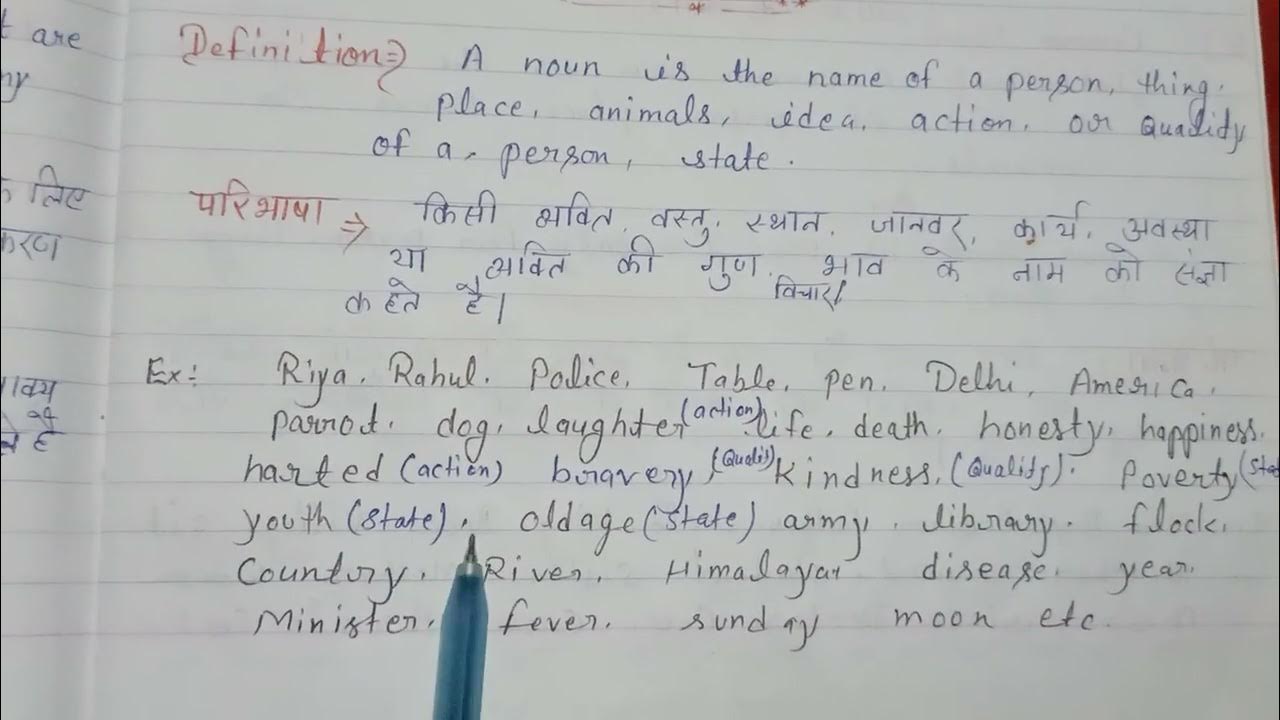 t are
ny
Definition⇒ A noun is the name of a person, thing.
place, animals, idea, action, or quality
of a, person, state.
के लिए
करण
परिभाषा ⇒ किसी व्यक्ति, वस्तु, स्थान, जानवर, कार्य, अवस्था
या व्यक्ति की गुण, भाव के नाम को संज्ञा
विचार/
कहते है।
Ex:- Riya, Rahul, Police, Table, pen, Delhi, America,
parrot, dog, laughter (action) life, death, honesty, happiness,
harted (action) bravery (Quality) kindness, (Quality). Poverty (Stat
youth (State), oldage (State) army, library, flock,
Country, River, Himalayar disease, year,
Minister, fever, sunday moon etc.